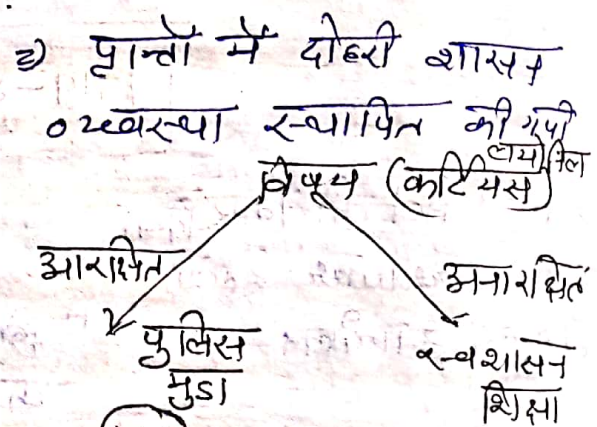 ⇒ प्रान्तों में दोहरी शासन
व्यवस्था स्थापित की गयी
विषय (कर्टियस)
आरक्षित अनारक्षित
पुलिस स्वशासन
मुद्रा शिक्षा